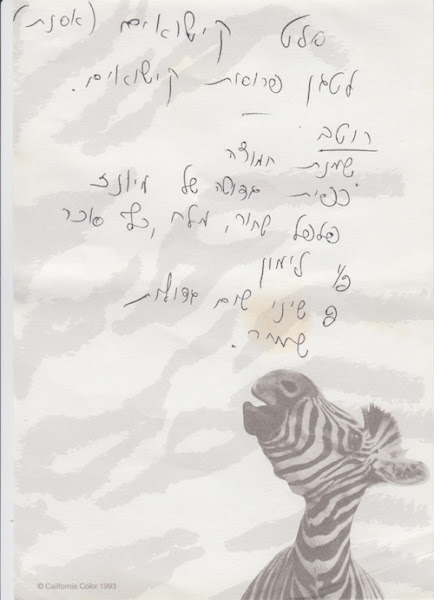 סלט קישואים (אסנת)
לטגן פרוסות קישואים.
רוטב
שמנת חמוצה
כפית של מיונז
פלפל שחור, מלח, כף סוכר
לימון
שיני שום גדולות
שמיר.
© California Color 1993